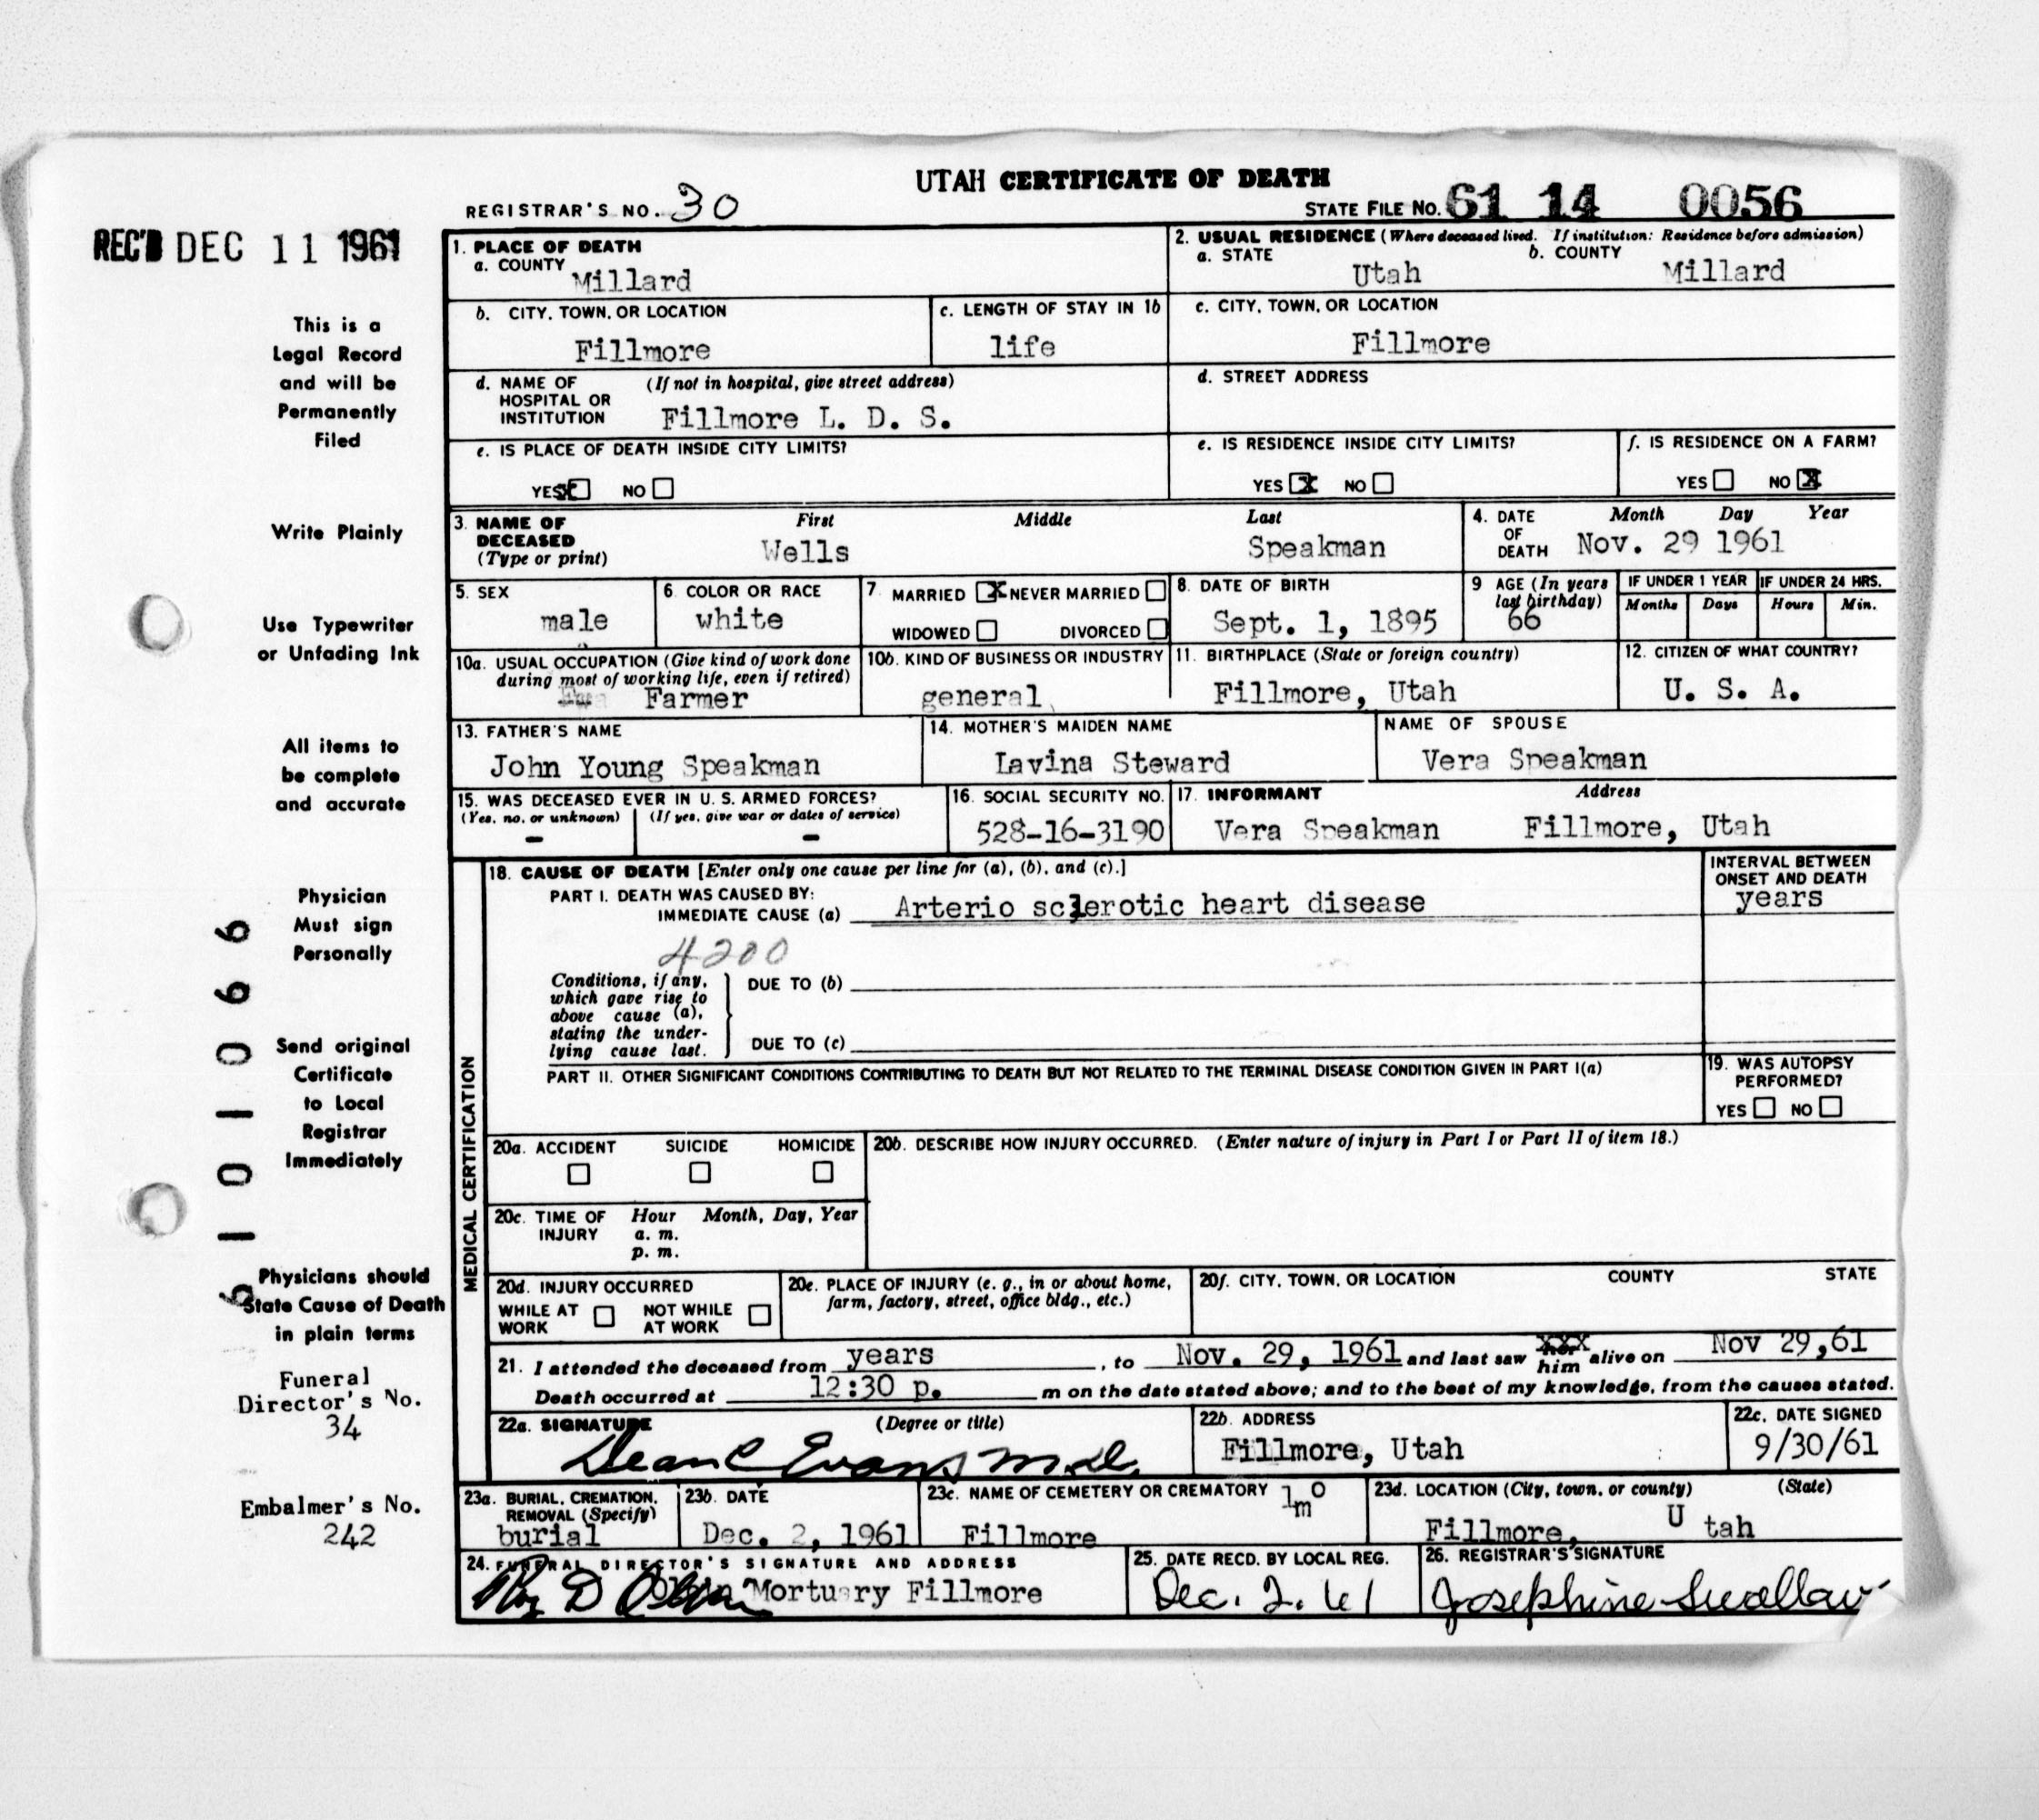 UTAH CERTIFICATE OF DEATH
REGISTRAR'S NO. 30
STATE FILE No. 61 14 0056
REC'D DEC 11 1961
This is a
Legal Record
and will be
Permanently
Filed
Write Plainly
Use Typewriter
or Unfading Ink
All items to
be complete
and accurate
Physician
Must sign
Personally
Send original
Certificate
to Local
Registrar
Immediately
Physicians should
State Cause of Death
in plain terms
Funeral
Director's No.
34
Embalmer's No.
242
1. PLACE OF DEATH
a. COUNTY
Millard
2. USUAL RESIDENCE (Where deceased lived. If institution: Residence before admission)
a. STATE
Utah
b. COUNTY
Millard
b. CITY, TOWN, OR LOCATION
Fillmore
c. LENGTH OF STAY IN 1b
life
c. CITY, TOWN, OR LOCATION
Fillmore
d. NAME OF (If not in hospital, give street address)
HOSPITAL OR
INSTITUTION Fillmore L. D. S.
d. STREET ADDRESS
e. IS PLACE OF DEATH INSIDE CITY LIMITS?
YES X NO
e. IS RESIDENCE INSIDE CITY LIMITS?
YES X NO
f. IS RESIDENCE ON A FARM?
YES NO X
3. NAME OF
DECEASED
(Type or print)
First Middle Last
Wells Speakman
4. DATE
OF
DEATH
Month Day Year
Nov. 29 1961
5. SEX
male
6. COLOR OR RACE
white
7. MARRIED X NEVER MARRIED
WIDOWED DIVORCED
8. DATE OF BIRTH
Sept. 1, 1895
9 AGE (In years
last birthday)
66
IF UNDER 1 YEAR
Months Days
IF UNDER 24 HRS.
Hours Min.
10a. USUAL OCCUPATION (Give kind of work done
during most of working life, even if retired)
Farmer
10b. KIND OF BUSINESS OR INDUSTRY
general
11. BIRTHPLACE (State or foreign country)
Fillmore, Utah
12. CITIZEN OF WHAT COUNTRY?
U. S. A.
13. FATHER'S NAME
John Young Speakman
14. MOTHER'S MAIDEN NAME
Lavina Steward
NAME OF SPOUSE
Vera Speakman
15. WAS DECEASED EVER IN U. S. ARMED FORCES?
(Yes, no, or unknown) (If yes, give war or dates of service)
- -
16. SOCIAL SECURITY NO.
528-16-3190
17. INFORMANT Address
Vera Speakman Fillmore, Utah
MEDICAL CERTIFICATION
18. CAUSE OF DEATH [Enter only one cause per line for (a), (b), and (c).]
PART I. DEATH WAS CAUSED BY:
IMMEDIATE CAUSE (a) Arterio sclerotic heart disease
INTERVAL BETWEEN
ONSET AND DEATH
years
4200
Conditions, if any,
which gave rise to
above cause (a),
stating the under-
lying cause last.
DUE TO (b)
DUE TO (c)
PART II. OTHER SIGNIFICANT CONDITIONS CONTRIBUTING TO DEATH BUT NOT RELATED TO THE TERMINAL DISEASE CONDITION GIVEN IN PART I(a)
19. WAS AUTOPSY
PERFORMED?
YES NO
20a. ACCIDENT SUICIDE HOMICIDE
20b. DESCRIBE HOW INJURY OCCURRED. (Enter nature of injury in Part I or Part II of item 18.)
20c. TIME OF Hour Month, Day, Year
INJURY a. m.
p. m.
20d. INJURY OCCURRED
WHILE AT NOT WHILE
WORK AT WORK
20e. PLACE OF INJURY (e. g., in or about home,
farm, factory, street, office bldg., etc.)
20f. CITY, TOWN, OR LOCATION COUNTY STATE
21. I attended the deceased from years, to Nov. 29, 1961 and last saw xxx her him alive on Nov 29,61
Death occurred at 12:30 p. m on the date stated above; and to the best of my knowledge, from the causes stated.
22a. SIGNATURE (Degree or title)
Dean C Evans M.D.
22b. ADDRESS
Fillmore, Utah
22c. DATE SIGNED
9/30/61
23a. BURIAL, CREMATION,
REMOVAL (Specify)
burial
23b. DATE
Dec. 2, 1961
23c. NAME OF CEMETERY OR CREMATORY
Fillmore
23d. LOCATION (City, town, or county) (State)
Fillmore, Utah
24. FUNERAL DIRECTOR'S SIGNATURE AND ADDRESS
Mortuary Fillmore
25. DATE RECD. BY LOCAL REG.
Dec. 2. 61
26. REGISTRAR'S SIGNATURE
Josephine Swallow
6 1 0 1 0 6 6